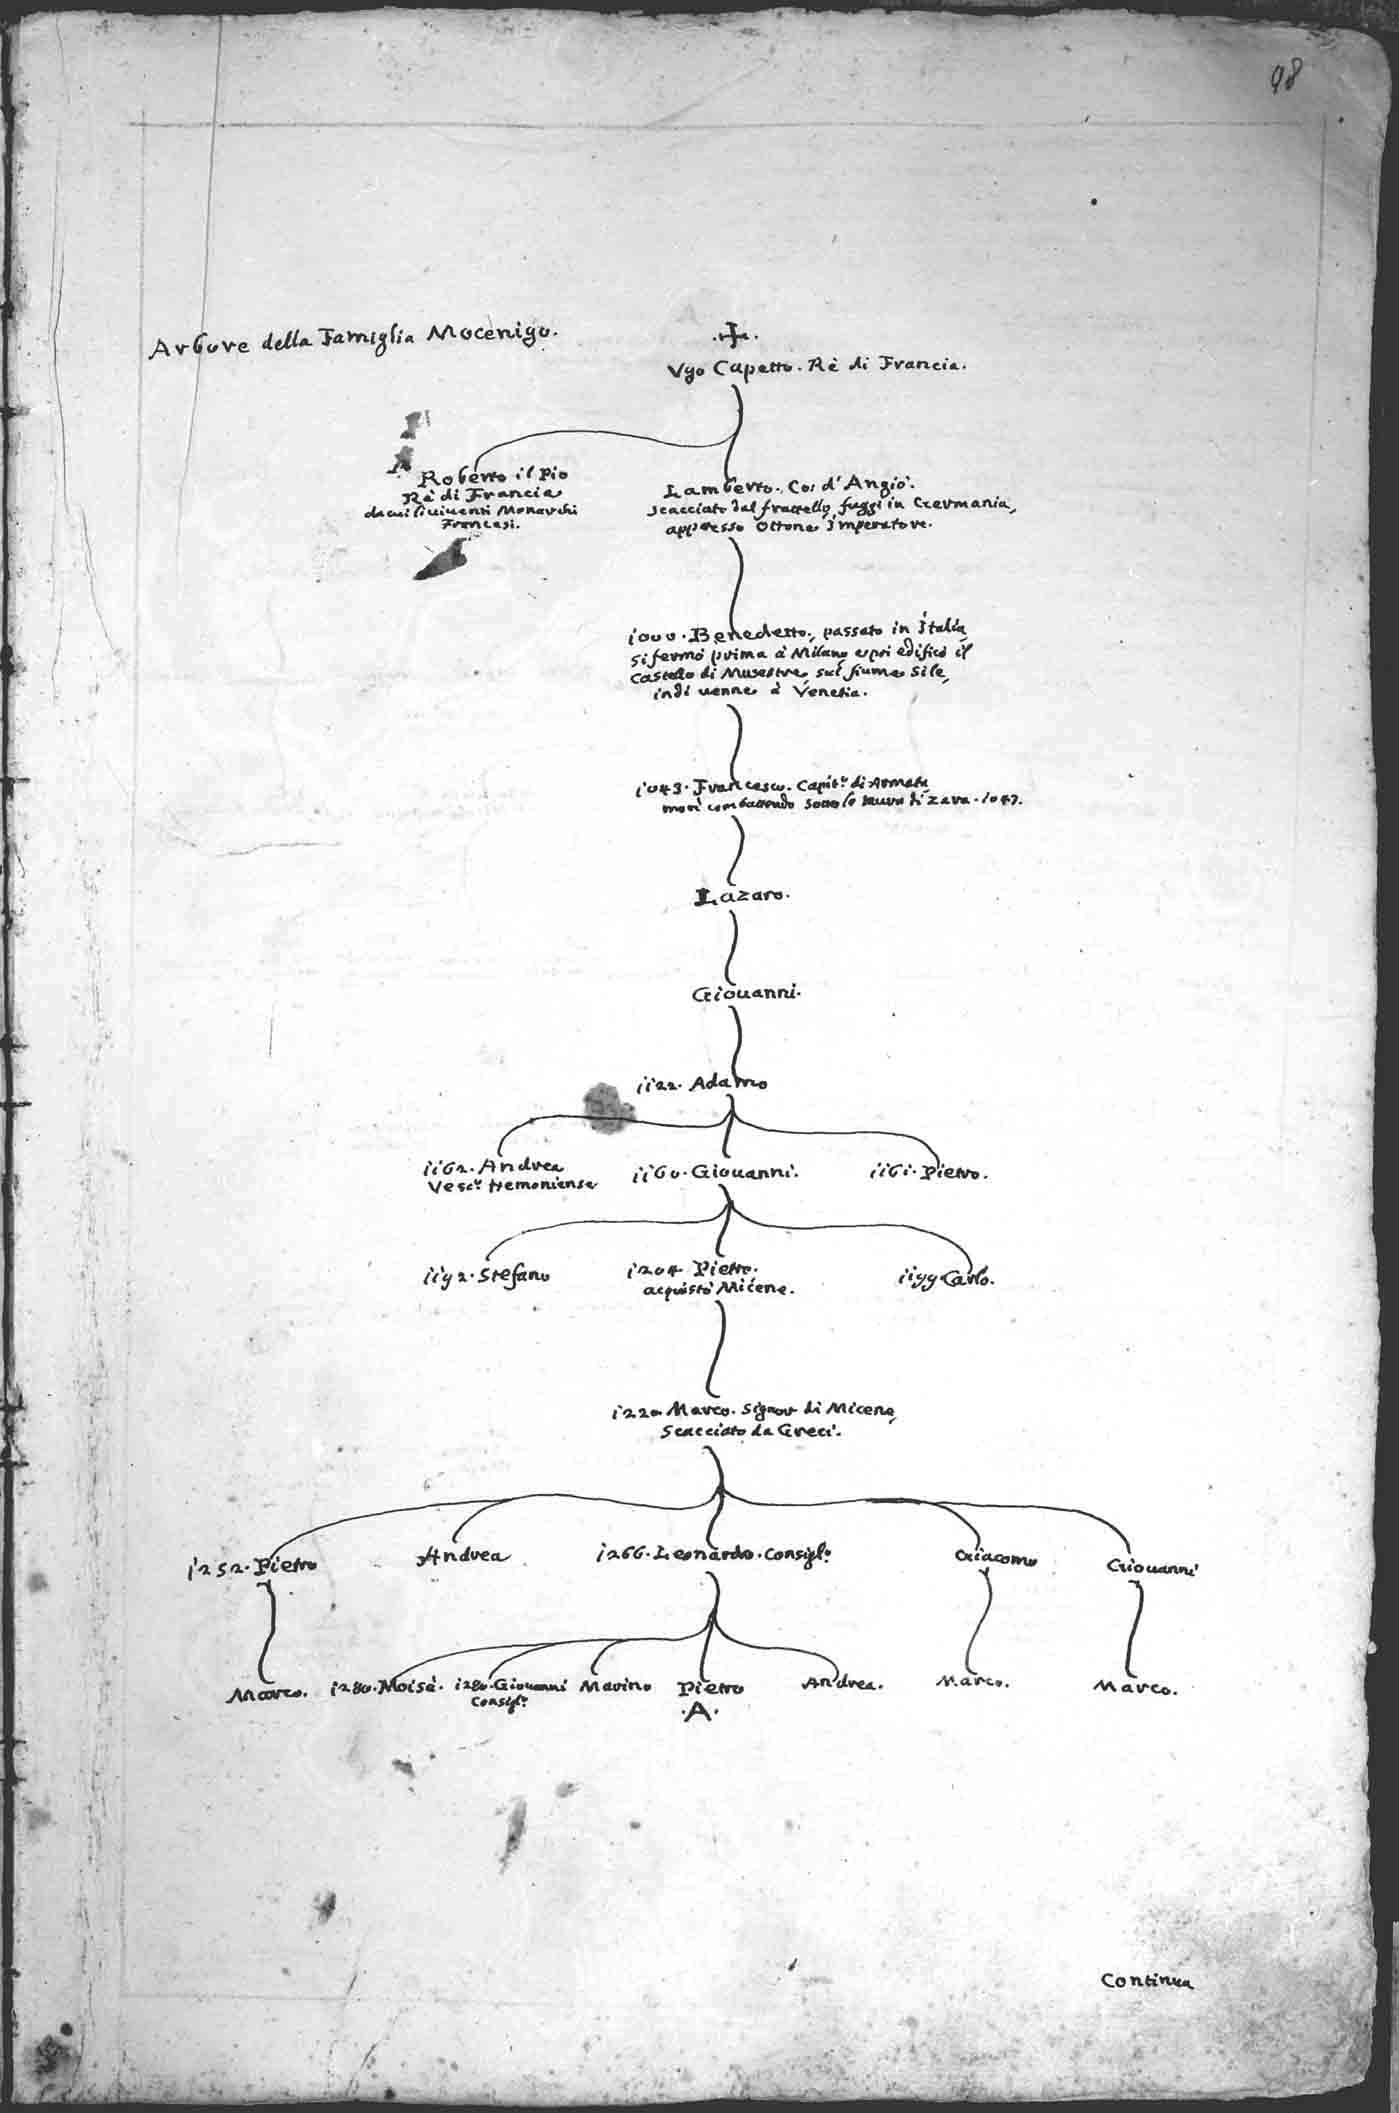 98
Arbore della Famiglia Mocenigo.
Vgo Capetto. Rè di Francia.
Roberto il Pio
Rè di Francia
da cui li viuenti Monarchi
Francesi.
Lamberto. Co: d'Angiò.
scacciato dal fratello, fuggì in Germania,
appresso Ottone Imperatore.
1000. Benedetto, passato in Italia,
si fermò prima à Milano e poi edificò il
Castello di Musestre, sul fiume Sile,
indi uenne à Venetia.
1043. Francesco. Capit.º di Armata
morì combattendo sotto le mura di Zara. 1047.
Lazaro.
Giouanni.
1122. Adamo
1162. Andrea
Vesc.º Hemoniense
1160. Giouanni.
1161. Pietro.
1192. Stefano
1204 Pietro.
acquistò Micene.
1199 Carlo.
1220 Marco. Signor di Micene,
Scacciato da Greci.
1252. Pietro
Andrea
1266. Leonardo. Consigl.º
Giacomo
Giouanni
Marco.
1280. Moisè.
1280. Giouanni
Consigl.º
Marino
Pietro
.A.
Andrea.
Marco.
Marco.
Continua